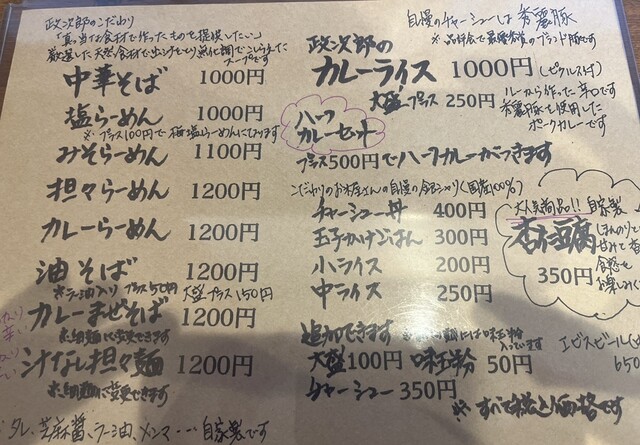 政次郎のこだわり
「真っ当な食材で作ったものを提供したい。」
厳選した天然食材で出汁をとり無化調でこしらえた
スープです
中華そば 1000円
塩らーめん 1000円
※プラス100円で梅塩らーめんになります
みそらーめん 1100円
担々らーめん 1200円
カレーらーめん 1200円
油そば 1200円
※ラー油入りプラス50円 大盛プラス150円
カレーまぜそば 1200円
※細麺に変更できます
汁なし担々麺 1200円
※細麺に変更できます
タレ、芝麻醤、ラー油、メンマ・・・自家製です
自慢のチャーシューは秀麗豚
※品評会で最優秀賞のブランド豚です
政次郎の
カレーライス 1000円 (ピクルス付)
大盛プラス 250円
ルーから作った辛口です
秀麗豚を使用した
ポークカレーです
ハーフ
カレーセット
プラス500円でハーフカレーがつきます
こだわりのお米屋さんの自慢の白米(国産100%)
チャーシュー丼 400円
玉子かけごはん 300円
小ライス 200円
中ライス 250円
大人気商品!! 自家製
杏仁豆腐
350円
ほんのり
甘みて
食感を
お楽しみ
追加できます
味玉半分
入っています
大盛100円 味玉半分 50円
チャーシュー 350円
エビスビール
650
※すべて税込価格です